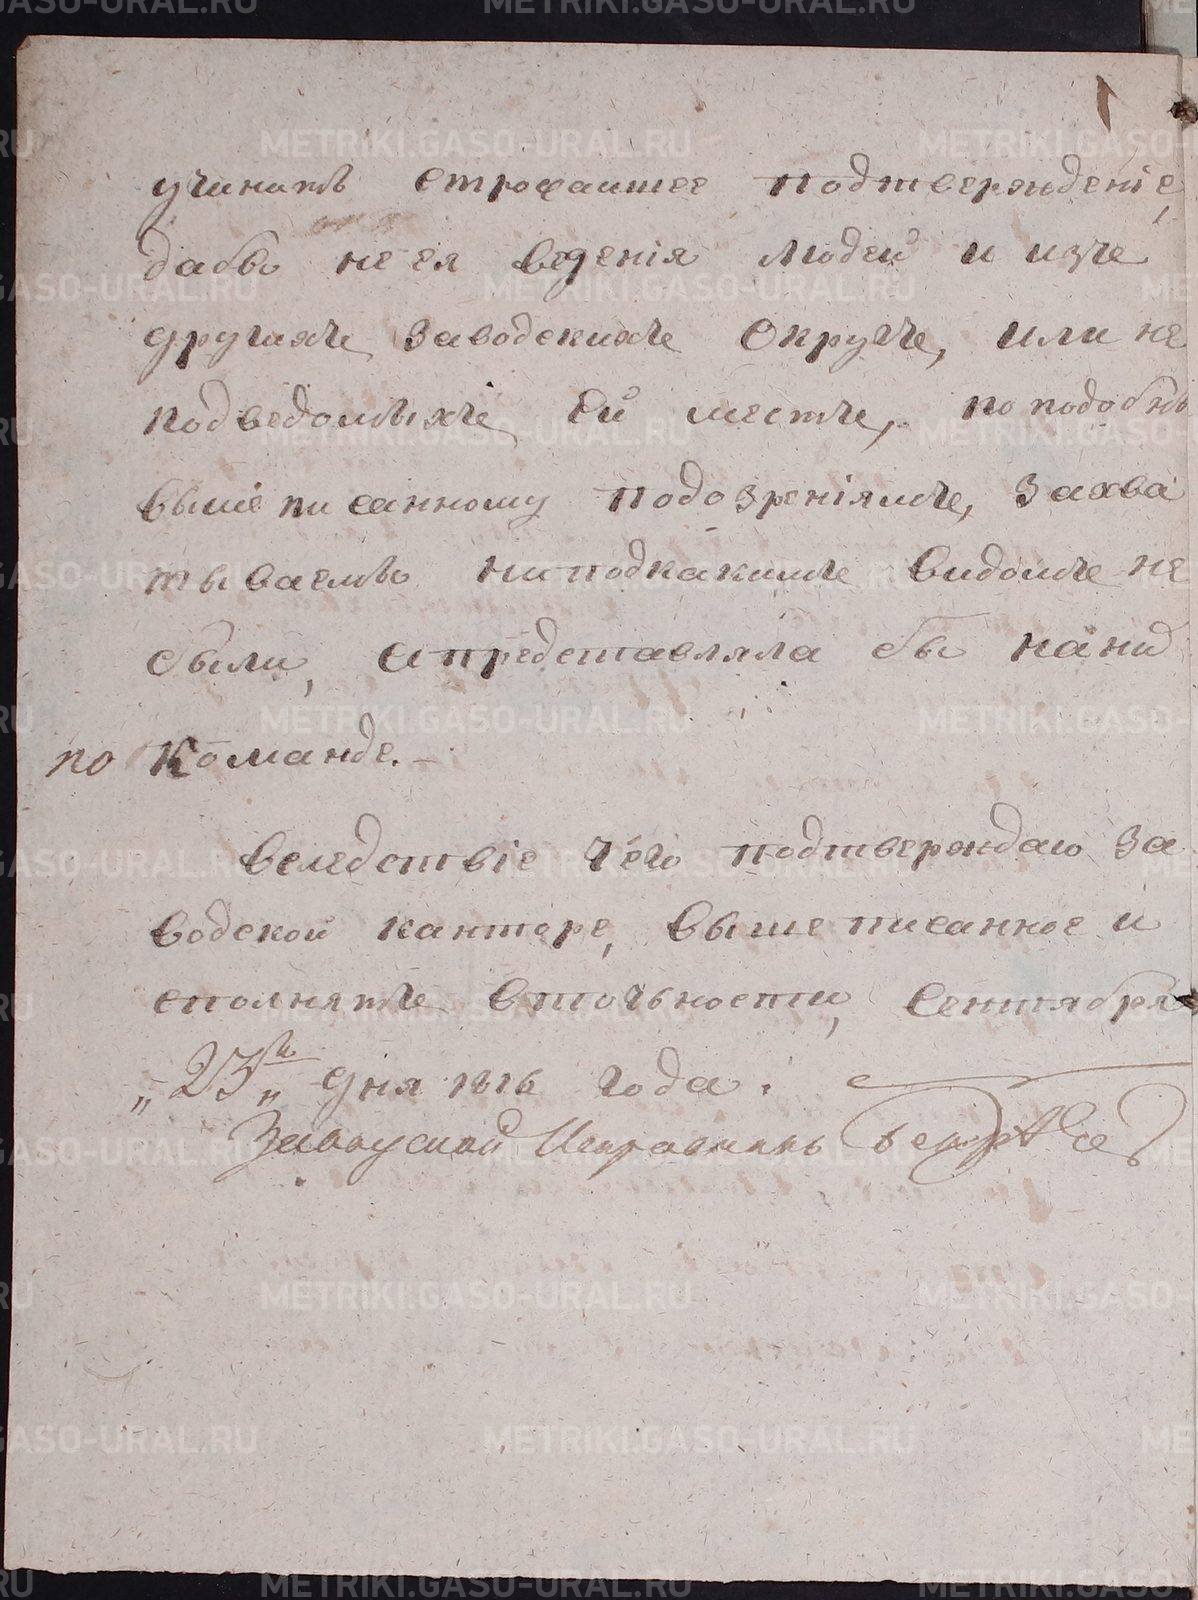 учинить строжайшее подтверждение,
дабы не ея ведения людей и изъ
другихъ заводскихъ округъ, или не
подведомыхъ ей местъ, по подобны
вышеписанному подозрениямъ, захва
тываемы ни подкакимъ видомъ не
были, а представляла бы на них
по команде.
вследствие чего подтверждаю за
водской канторе, вышеписанное и
сполнять вточьности, Сентября
„23го„ дня 1816 года.
Заводской Исправникъ
METRIKI.GASO-URAL.RU